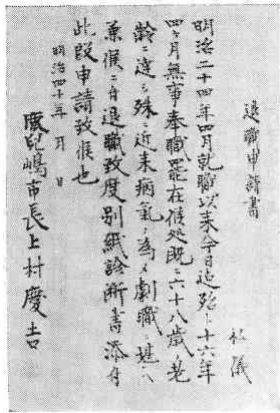 退職申請書
私儀
明治二十四年四月就職以来今日迄殆ト十六年
四ヶ月無事奉職罷在候処既ニ六十八歳ノ老
齢ニ達シ殊ニ近来病気ノ為メ劇職ニ堪ヘ
兼候ニ付退職致度別紙診断書添付
此段申請致候也
明治四十年 月 日
鹿児嶋市長上村慶吉